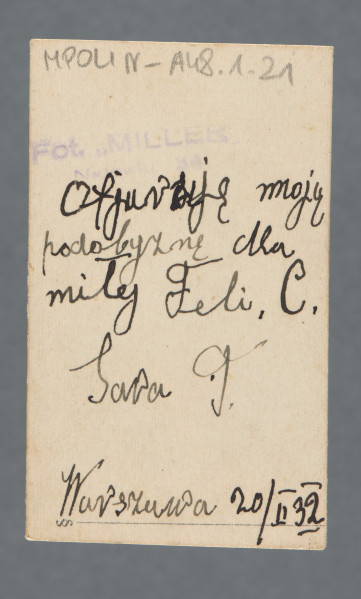 MPOLIN-A48.1.21
Fot. „MILLER"
Ofjaruję moją
podobyznę dla
miłej Feli, C.
Sara T.
Warszawa 20/II 32